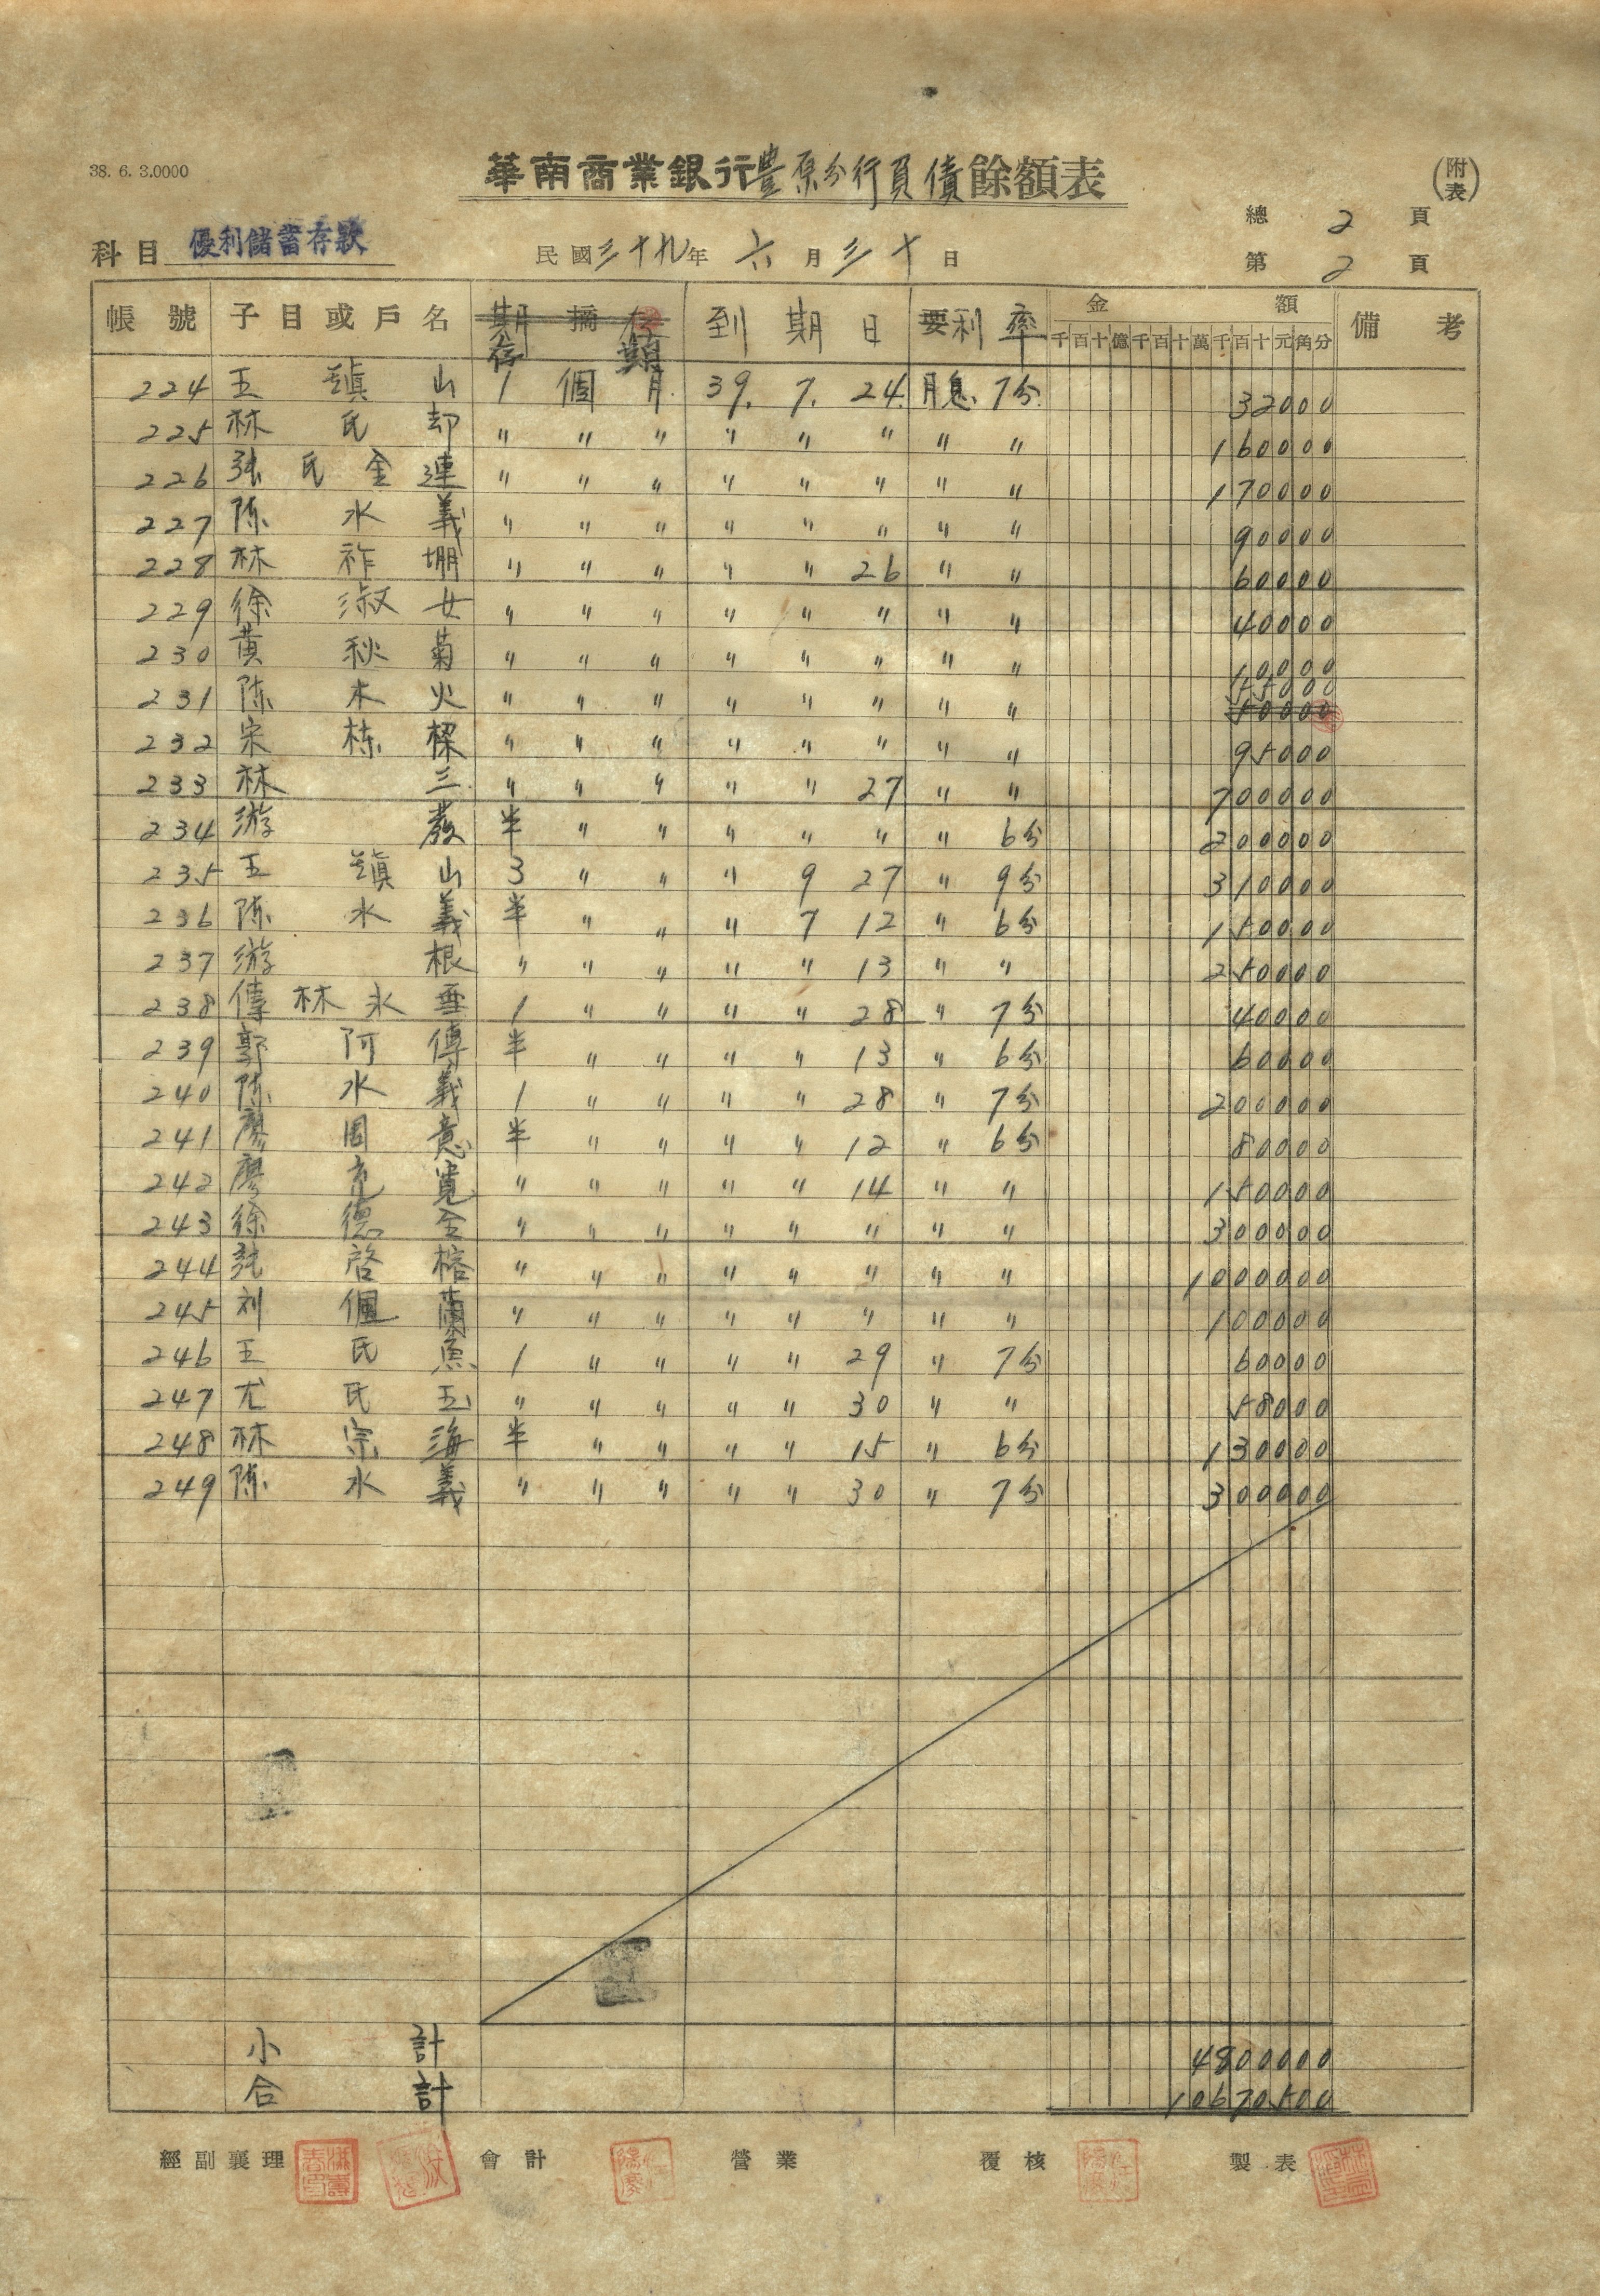 38. 6. 3.0000
華南商業銀行豊原分行負債餘額表
(附表)
總 2 頁
科目 優利儲蓄存款
民國三十九年 六月三十日
第 2 頁
帳號 子目或戶名 存期 到期日 利率 金額 備考
千百十億千百十萬千百十元角分
224 王鎮山 1個月 39. 7. 24. 月息 7分 32000
225 林氏却 〃 〃 〃 〃 〃 〃 〃 〃 160000
226 張氏金連 〃 〃 〃 〃 〃 〃 〃 〃 170000
227 陈水義 〃 〃 〃 〃 〃 〃 〃 〃 90000
228 林祚堋 〃 〃 〃 〃 〃 26 〃 〃 60000
229 徐淑女 〃 〃 〃 〃 〃 〃 〃 〃 40000
230 黄秋菊 〃 〃 〃 〃 〃 〃 〃 〃 10000
231 陈木火 〃 〃 〃 〃 〃 〃 〃 〃 55000
50000
232 宋栋樑 〃 〃 〃 〃 〃 〃 〃 〃 95000
233 林三 〃 〃 〃 〃 〃 27 〃 〃 700000
234 游發 半 〃 〃 〃 〃 〃 〃 6分 200000
235 王鎮山 3 〃 〃 〃 9 27 〃 9分 310000
236 陈水義 半 〃 〃 〃 7 12 〃 6分 150000
237 游根 〃 〃 〃 〃 〃 13 〃 〃 250000
238 傅林永垂 1 〃 〃 〃 〃 28 〃 7分 40000
239 郭阿傳 半 〃 〃 〃 〃 13 〃 6分 60000
240 陈水義 1 〃 〃 〃 〃 28 〃 7分 200000
241 廖周意 半 〃 〃 〃 〃 12 〃 6分 80000
242 廖克寛 〃 〃 〃 〃 〃 14 〃 〃 150000
243 徐德全 〃 〃 〃 〃 〃 〃 〃 〃 300000
244 張啓榕 〃 〃 〃 〃 〃 〃 〃 〃 1000000
245 刘佩蘭 〃 〃 〃 〃 〃 〃 〃 〃 100000
246 王氏魚 1 〃 〃 〃 〃 29 〃 7分 60000
247 尤氏玉 〃 〃 〃 〃 〃 30 〃 〃 58000
248 林宗海 半 〃 〃 〃 〃 15 〃 6分 130000
249 陈水義 〃 〃 〃 〃 〃 30 〃 7分 300000
小計 4800000
合計 10670500
經副襄理 會計 營業 覆核 製表